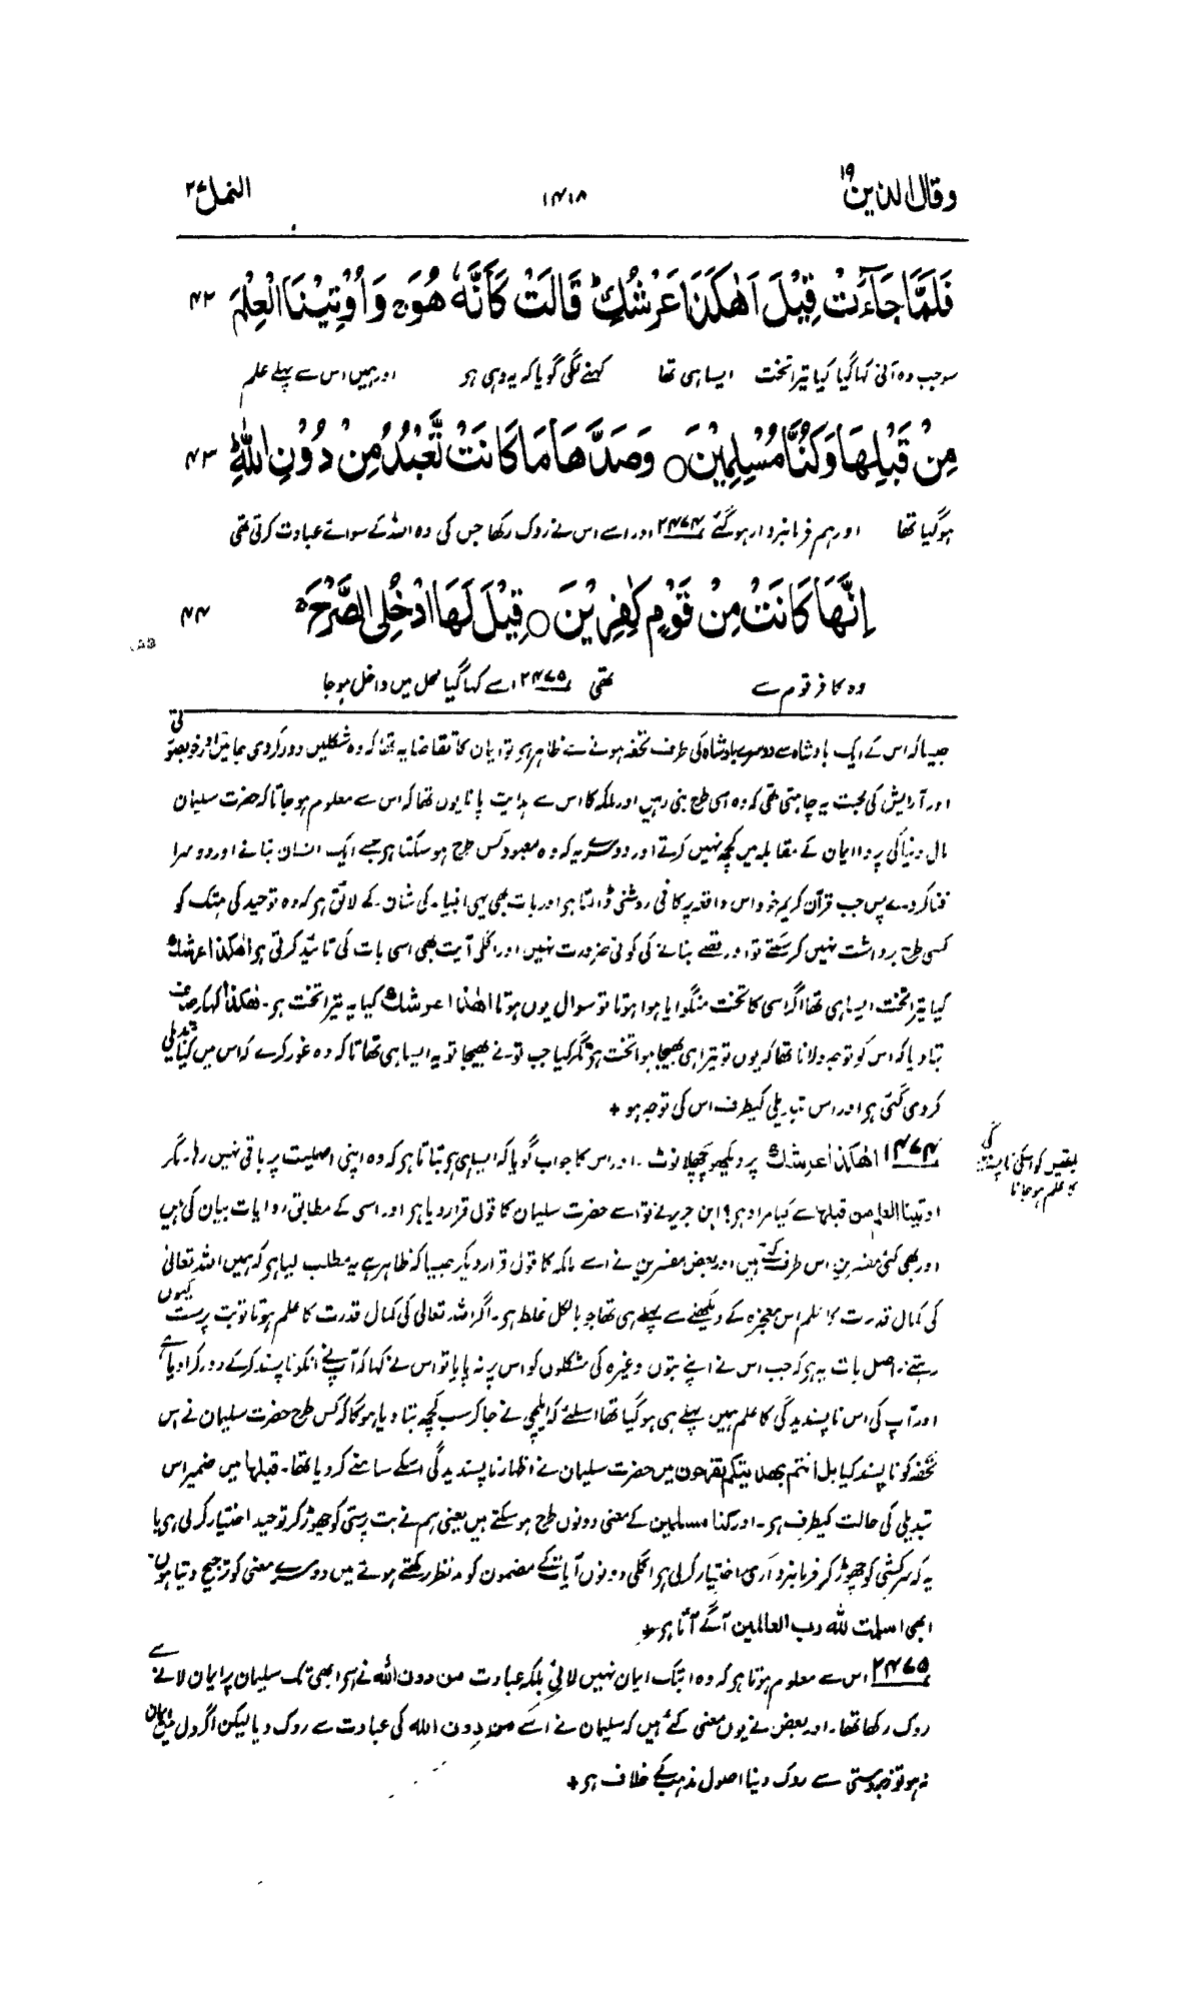 وقال الذین ۱۹ ۱۴۱۸ النمل ۲۷
فَلَمَّا جَآءَتْ قِيْلَ اَهٰكَذَا عَرْشُكِ ؕ قَالَتْ كَاَنَّهٗ هُوَ ۚ وَاُوْتِيْنَا الْعِلْمَ ۴۲
سو جب وہ آئی کہا گیا کیا تیرا تخت ایسا ہی تھا کہنے لگی گویا کہ یہ وہی ہو اور ہمیں اس سے پہلے علم
مِنْ قَبْلِهَا وَكُنَّا مُسْلِمِيْنَ ○ وَصَدَّهَا مَا كَانَتْ تَّعْبُدُ مِنْ دُوْنِ اللّٰهِ ؕ ۴۳
ہوگیا تھا اور ہم فرمانبردار ہو گئے ۲۴۷۴ اور اسے اس نے روک رکھا جس کی وہ اللہ کے سوائے عبادت کرتی تھی
اِنَّهَا كَانَتْ مِنْ قَوْمٍ كٰفِرِيْنَ ○ قِيْلَ لَهَا ادْخُلِى الصَّرْحَ ۚ ۴۴
وہ کافر قوم سے تھی ۲۴۷۵ اسے کہا گیا محل میں داخل ہو جا
جیسا کہ اس کے ایک بادشاہ سے دوسرے بادشاہ کی طرف تحفہ ہونے سے ظاہر ہو تو ایمان کا تقاضا یہ تھا کہ وہ شکلیں دور کر دی جائیں اور خوبصورتی
اور آرایش کی محبت یہ چاہتی تھی کہ وہ اسی طرح بنی رہیں اور ملکہ کا اس سے ہدایت پانا یوں تھا کہ اس سے معلوم ہو جاتا کہ حضرت سلیمان
مال دنیا کی پروا ایمان کے مقابلہ میں کچھ نہیں کرتے اور دوسرے یہ کہ وہ معبود کس طرح ہو سکتا ہو جسے ایک انسان بنائے اور دوسرا
فنا کر دے پس جب قرآن کریم خود اس واقعہ پر کافی روشنی ڈالتا ہو اور بات بھی یہی انبیاء کی شان کے لائق ہو کہ وہ توحید کی ہتک کو
کسی طرح برداشت نہیں کر سکتے تو اور قصے بنانے کی کوئی ضرورت نہیں اور اگلی آیت بھی اسی بات کی تائید کرتی ہو اھکذا عرشك
کیا تیرا تخت ایسا ہی تھا اگر اسی کا تخت منگوایا ہوا ہوتا تو سوال یوں ہوتا اھذا عرشك کیا یہ تیرا تخت ہو۔ ھکذا کہکر صاف
بتا دیا کہ اس کو توجہ دلانا تھا کہ یوں تو تیرا ہی بھیجا ہوا تخت ہو مگر کیا جب تو نے بھیجا تو یہ ایسا ہی تھا تا کہ وہ غور کرے کہ اس میں کیا تبدیلی
کر دی گئی ہو اور اس تبدیلی کیطرف اس کی توجہ ہو +
۲۴۷۴ اھکذا عرشك پر دیکھو پچھلا نوٹ۔ اور اس کا جواب گویا کہ ایسا ہی ہو بتاتا ہو کہ وہ اپنی اصلیت پر باقی نہیں رہا۔ مگر
بلقیس کو اسکی ناپسندیدگی
کا علم ہو جانا
اوتینا العلم من قبلھا سے کیا مراد ہو؟ ابن جریر نے تو اسے حضرت سلیمان کا قول قرار دیا ہو اور اسی کے مطابق روایات بیان کی ہیں
اور بھی کئی مفسرین اس طرف گئے ہیں اور بعض مفسرین نے اسے ملکہ کا قول قرار دیکر جیسا کہ ظاہر ہے یہ مطلب لیا ہو کہ ہمیں اللہ تعالیٰ
کی کمال قدرت کا علم اس معجزہ کے دیکھنے سے پہلے ہی تھا جو بالکل غلط ہو۔ اگر اللہ تعالیٰ کی کمال قدرت کا علم ہوتا تو بت پرست کیوں
رہتے۔ اصل بات یہ ہو کہ جب اس نے اپنے بتوں وغیرہ کی شکلوں کو اس پر نہ پایا تو اس نے کہا کہ آپ نے انکو ناپسند کر کے دور کرا دیا ہے
اور آپ کی اس ناپسندیدگی کا علم ہمیں پہلے ہی ہو گیا تھا اسلئے کہ ایلچی نے جا کر سب کچھ بتا دیا ہوگا کہ کس طرح حضرت سلیمان نے اس
تحفہ کو ناپسند کیا بل انتم بھدیتکم تفرحون میں حضرت سلیمان نے اظہار ناپسندیدگی اسکے سامنے کر دیا تھا۔ قبلھا میں ضمیر اس
تبدیلی کی حالت کیطرف ہو۔ اور کنا مسلمین کے معنی دونوں طرح ہو سکتے ہیں یعنی ہم نے بت پرستی کو چھوڑ کر توحید اختیار کر لی ہو یا
یہ کہ سرکشی کو چھوڑ کر فرمانبرداری اختیار کر لی ہو اگلی دونوں آیات کے مضمون کو مدنظر رکھتے ہوئے میں دوسرے معنی کو ترجیح دیتا ہوں
ابھی اسلمت للہ رب العالمین آگے آتا ہو +
۲۴۷۵ اس سے معلوم ہوتا ہو کہ وہ ابتک ایمان نہیں لائی بلکہ عبادت من دون اللہ نے ہی ابھی تک سلیمان پر ایمان لانے سے
روک رکھا تھا۔ اور بعض نے یوں معنی کئے ہیں کہ سلیمان نے اسے من دون اللہ کی عبادت سے روک دیا لیکن اگر دل میں ایمان
نہ ہو تو زبردستی سے روک دینا اصول مذہب کے خلاف ہو +